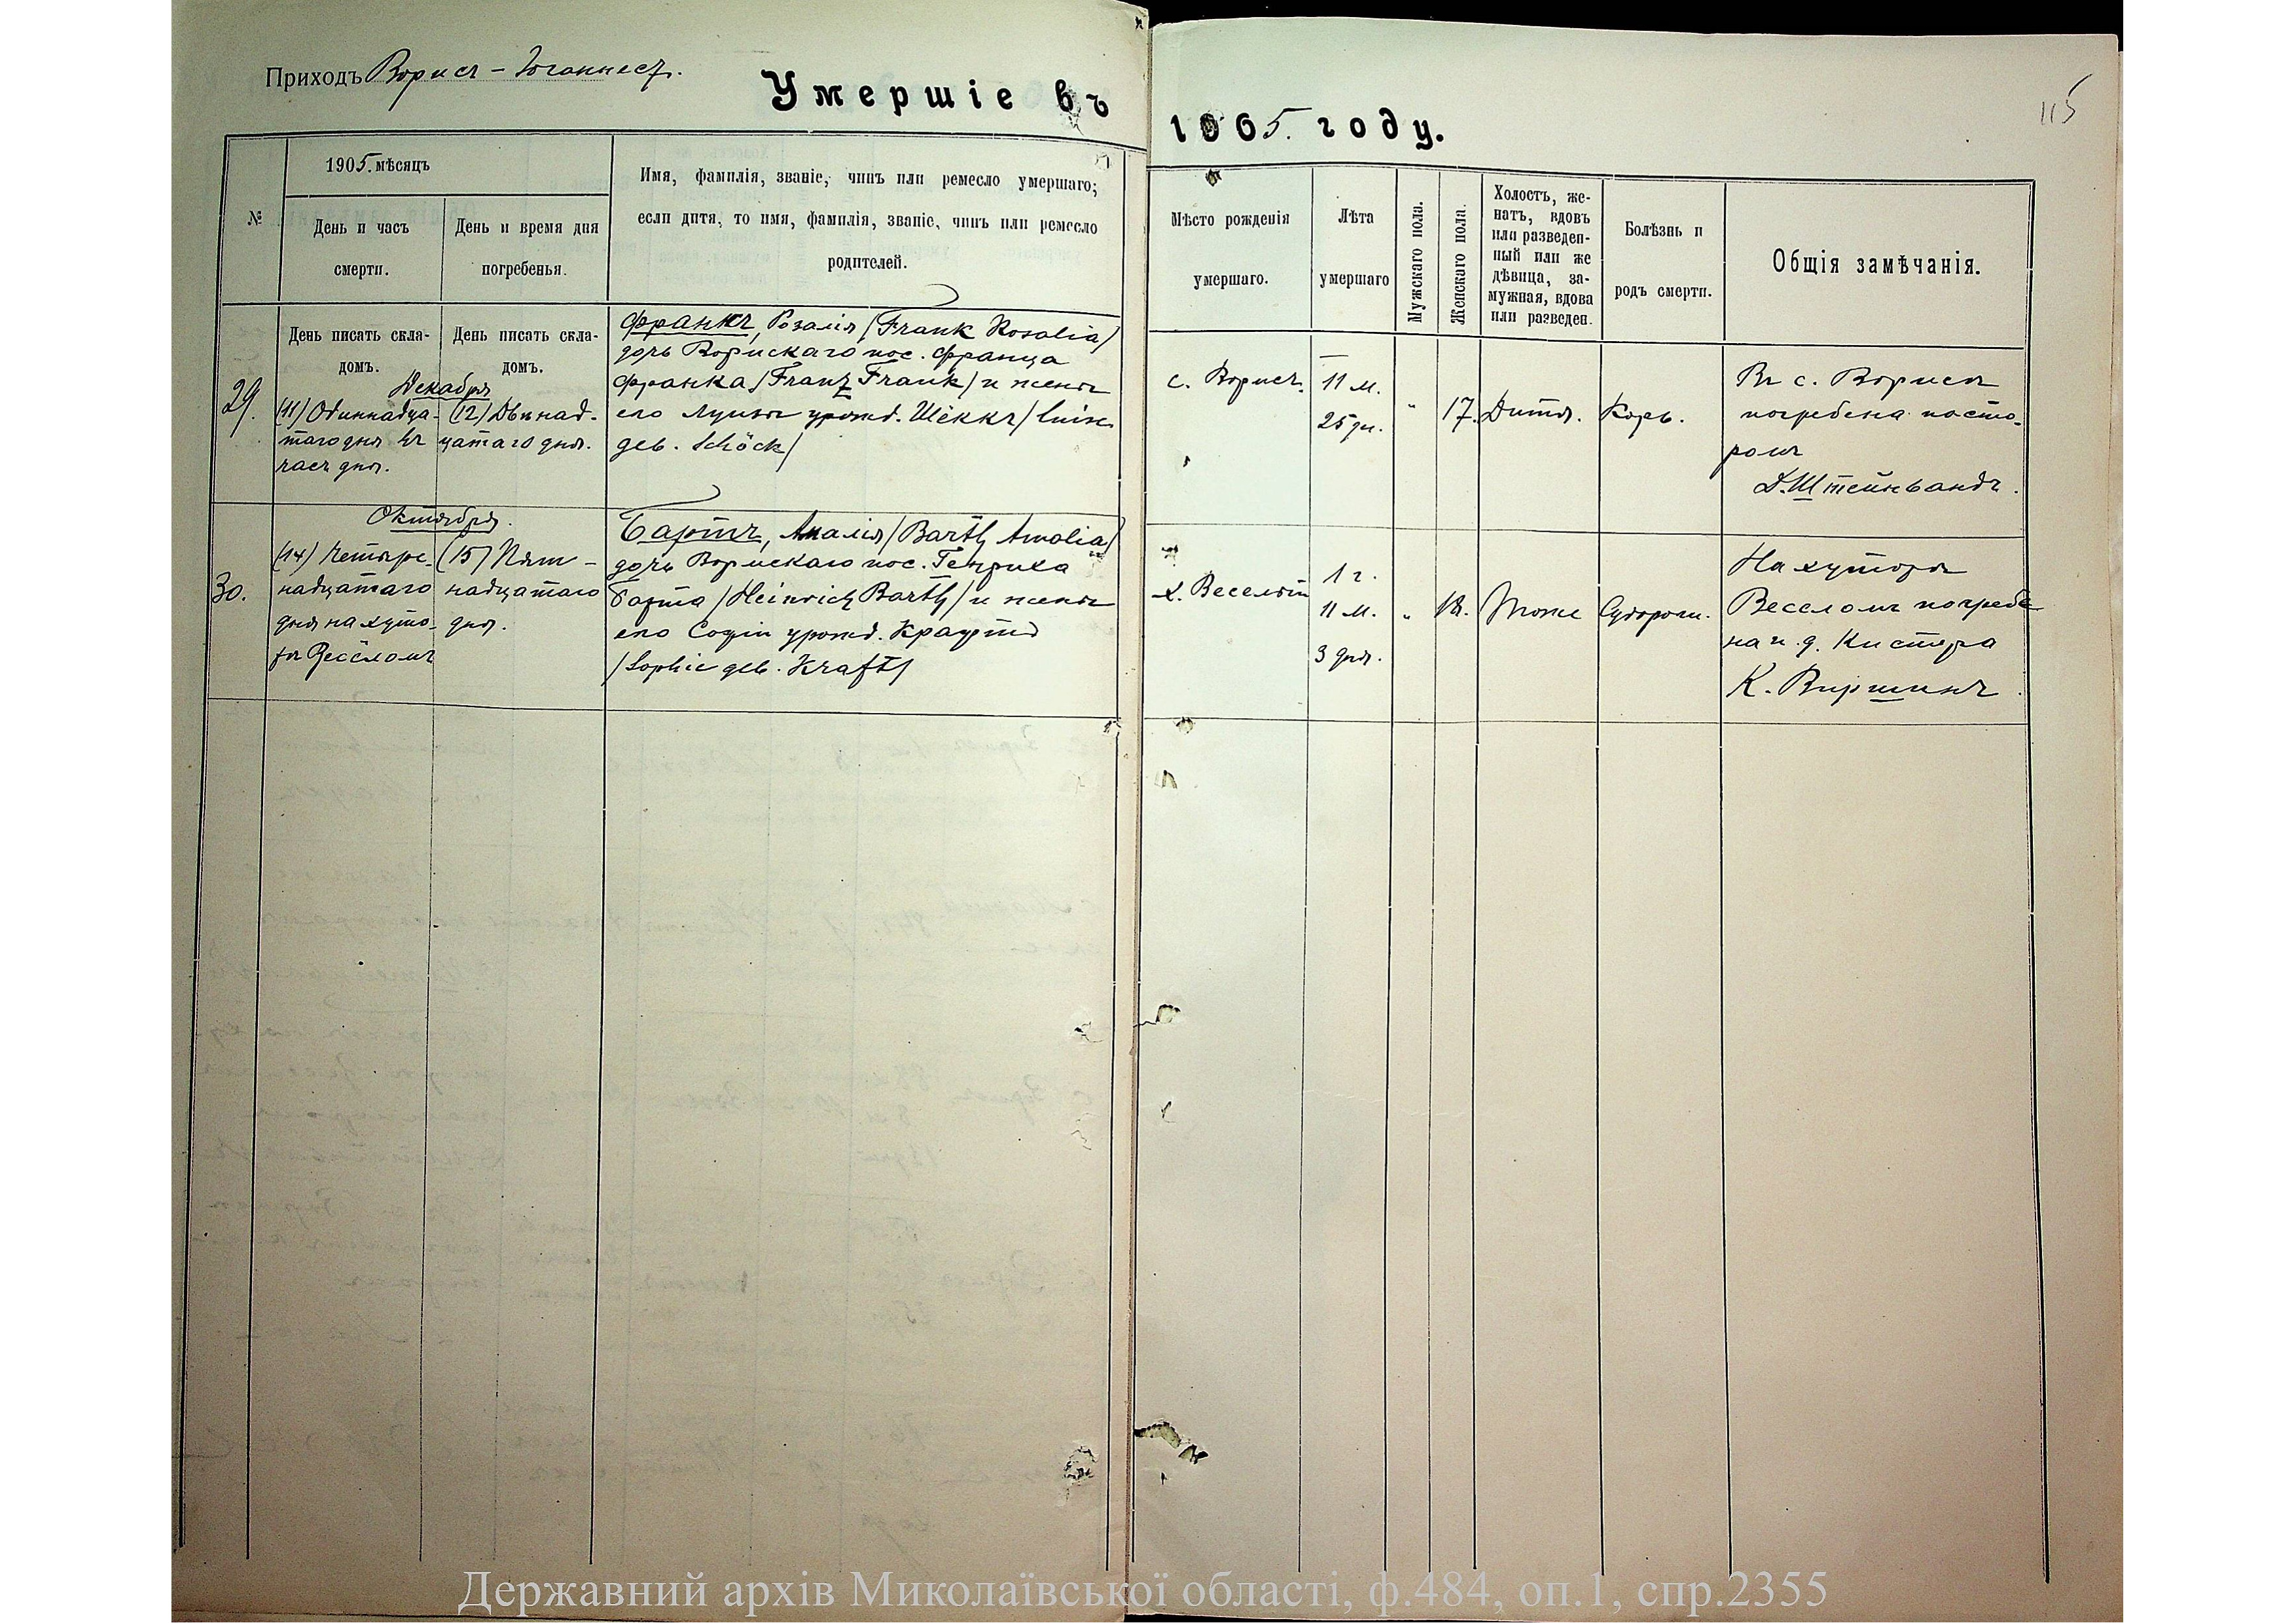 Приходъ Вормсъ – Іоганнесъ.
Умершіе въ
1905. году.
115
№
1905. мѣсяцъ
День и часъ
смерти.
День и время дня
погребенья.
Имя, фамилія, званіе, чинъ или ремесло умершаго;
если дитя, то имя, фамилія, званіе, чинъ или ремесло
родителей.
Мѣсто рожденія
умершаго.
Лѣта
умершаго
Мужскаго пола.
Женскаго пола.
Холостъ, же-
натъ, вдовъ
или разведен-
ный или же
дѣвица, за-
мужная, вдова
или разведен.
Болѣзнь и
родъ смерти.
Общія замѣчанія.
День писать скла-
домъ.
День писать скла-
домъ.
29.
Декабря
(11) Одиннадца-
таго дня въ
часъ дня.
(12) Двѣнад-
цатаго дня.
Франкъ, Розалія /Frank Rosalia/
дочь Вормскаго пос. Франца
Франка /Franz Frank/ и жены
его Луизы урожд. Шёккъ /Luise
geb. Schöck/
с. Вормсъ.
11 м.
25 дн.
"
17.
Дитя.
Корь.
Въ с. Вормсѣ
погребена пасто-
ромъ
Д. Штейнвандъ.
30.
Октября.
(14) Четыре-
надцатаго
дня на хуто-
рѣ Весёломъ
(15) Пят-
надцатаго
дня.
Бартъ, Амалія /Barth Amalia/
дочь Вормскаго пос. Генриха
Барта /Heinrich Barth/ и жены
его Софіи урожд. Крафтъ
/Sophie geb. Kraft/
х. Веселый
1 г.
11 м.
3 дня.
"
18.
Тоже
Судороги.
На хуторѣ
Веселомъ погребе
на и. д. Кистера
К. Виршинъ.
Державний архів Миколаївської області, ф.484, оп.1, спр.2355